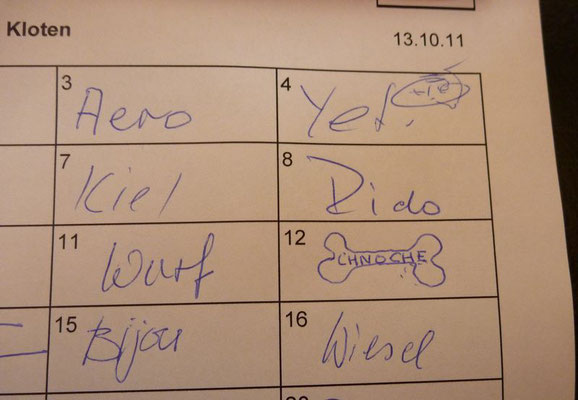 Kloten
13.10.11
3 4
Aero Yet.
7 8
Kiel Dido
11 12
Wurf CHNOCHE
15 16
Bijou Wiesel